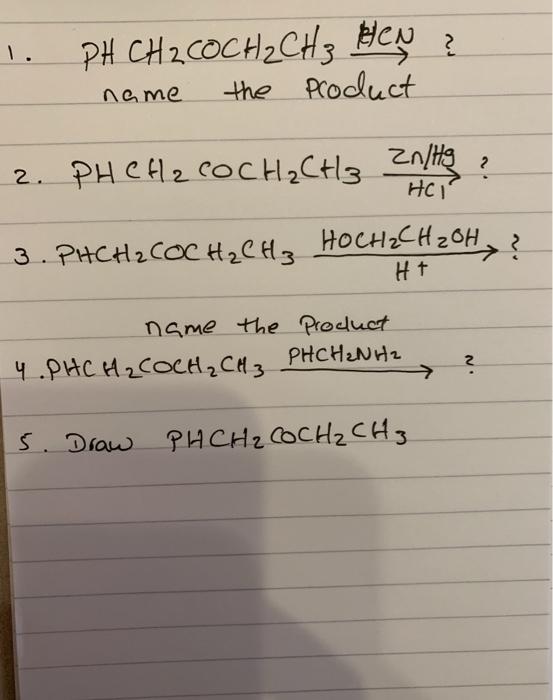 1. PH CH2COCH2CH3 HCN → ?
name the product
2. PHCH2COCH2CH3 Zn/Hg → HCl ?
3. PHCH2COCH2CH3 HOCH2CH2OH → H+ ?
name the Product
4. PHCH2COCH2CH3 PHCH2NH2 → ?
5. Draw PHCH2COCH2CH3